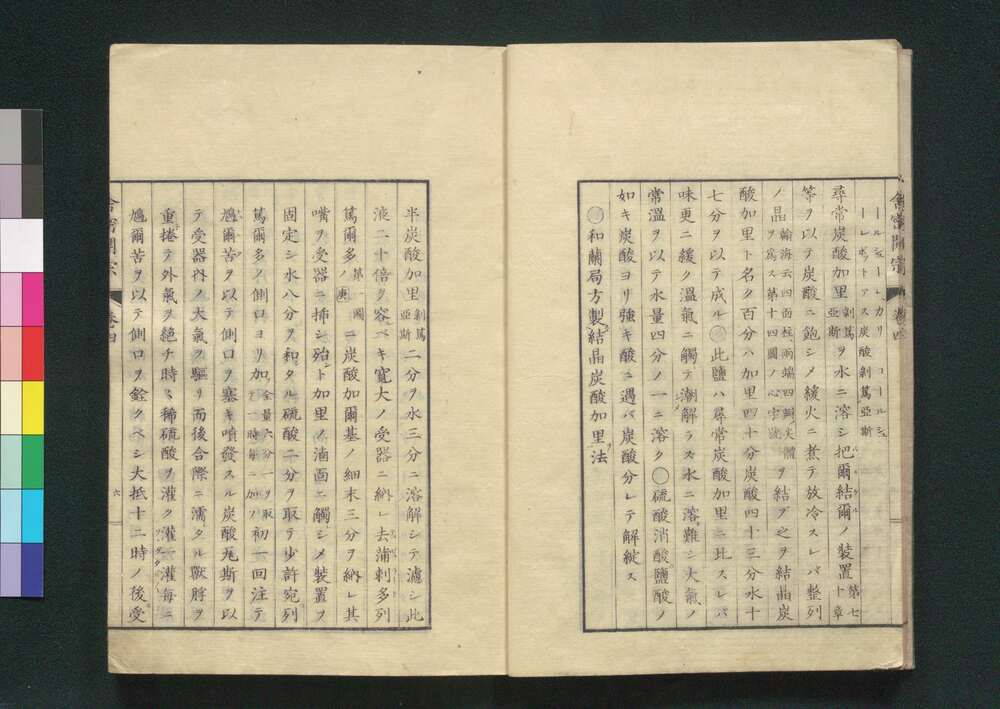 舎密開宗 巻四
ールシューレ、カリ コールシュ
ーレポットアス炭酸剝篤亜斯
尋常炭酸加里剝篤亜斯ヲ水ニ溶シ把爾結爾ノ装置第七十章
等ヲ以テ炭酸ニ飽シメ緩火ニ煮テ放冷スレバ整列
ノ晶榕海云四面柱、両端四斜尖体ヲ為ス第十四圖ノ心字號ヲ結ブ之ヲ結晶炭
酸加里ト名ク百分ハ加里四十分炭酸四十三分水十
七分ヲ以テ成ル○此鹽ハ尋常炭酸加里ニ比スレバ
味更ニ緩ク温氣ニ觸テ潮解ラス水ニ溶難シ大氣ノ
常温ヲ以テ水量四分ノ一ニ溶ク○硫酸消酸鹽酸ノ
如キ炭酸ヨリ強キ酸ニ遇バ炭酸分レテ解縦ス
○和蘭局方製結晶炭酸加里法
半炭酸加里剝篤亜斯二分ヲ水三分ニ溶解シテ濾シ此
液二十倍ク容ベキ寛大ノ受器ニ納レ去蒲刺多列
篤爾多第一圖ノ庚ニ炭酸加爾基ノ細末三分ヲ納レ其
嘴ヲ受器ニ挿シ殆ト加里ノ滷面ニ觸シメ装置ヲ
固定シ水八分ヲ和タル硫酸二分ヲ取テ少許宛列
篤爾多ノ側口ヨリ加全量六分一ヲ取テ一時毎ニ加フ初一回注テ
尶爾苦ヲ以テ側口ヲ塞キ噴發スル炭酸瓦斯ヲ以
テ受器内ノ大氣ヲ駆リ而後合際ニ濡タル獣脬ヲ
重捲テ外氣ヲ絶チ時々稀硫酸ヲ灌ク灌一灌毎ニ
尶爾苦ヲ以テ側口ヲ銓クベシ大抵十二時ノ後受
舎密開宗 巻四 六